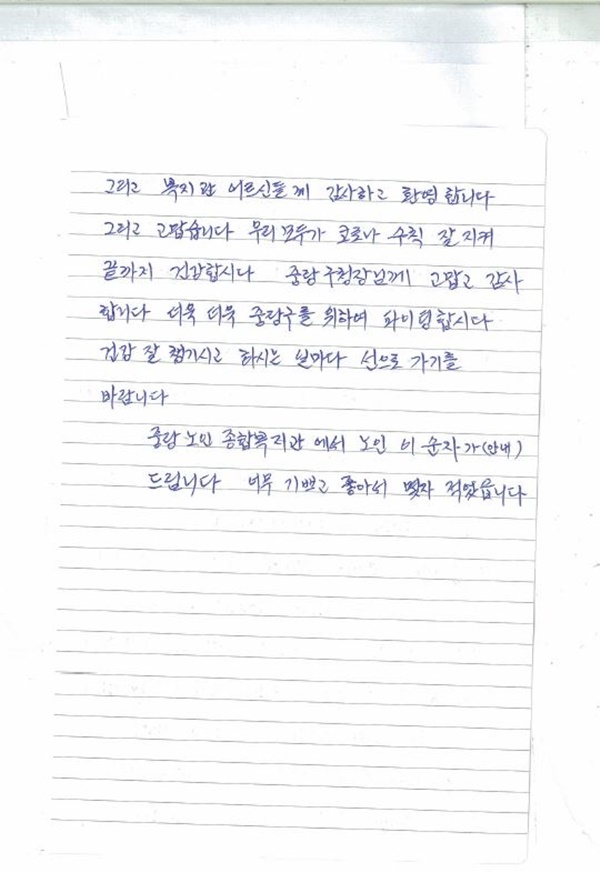 그리고 복지관 어르신들께 감사하고 환영합니다
그리고 고맙습니다 우리모두가 코로나 수칙 잘 지켜
끝까지 건강합시다 중랑구청장님께 고맙고 감사
합니다 더욱 더욱 중랑구를 위하여 파이팅합시다
건강 잘 챙기시고 하시는 날마다 선으로 가기를
바랍니다
중랑노인 종합복지관에서 노인 이순자가(안내)
드립니다 너무 기쁘고 좋아서 몇자 적었읍니다